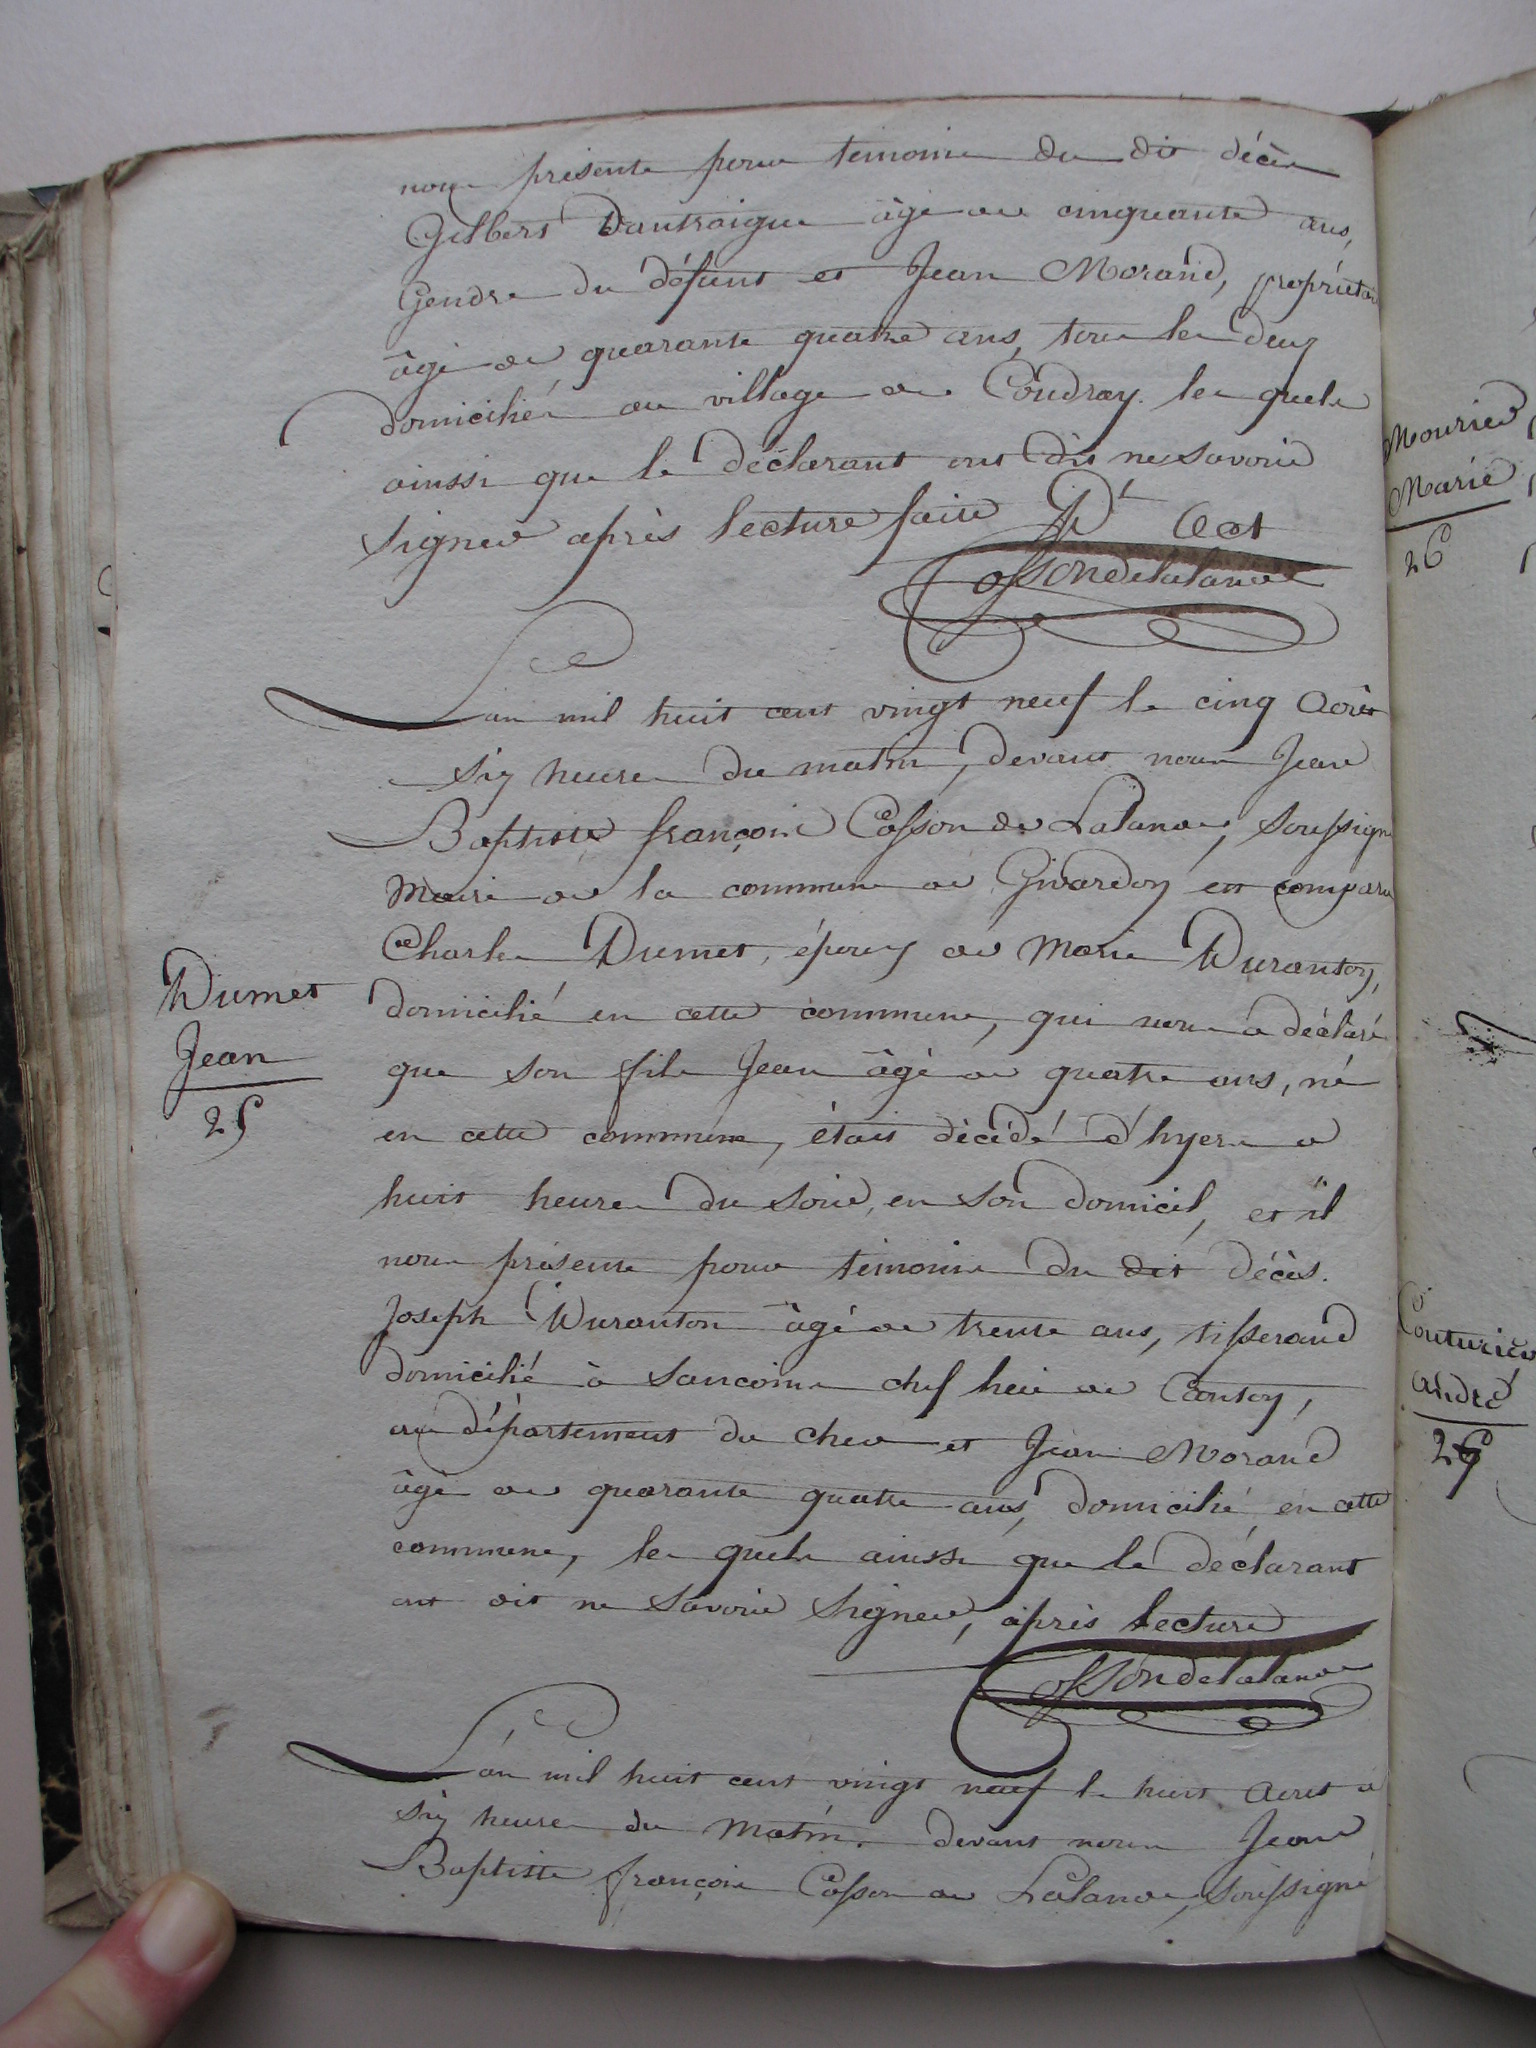 nous présente pour temoins du dit décès
Gilbert Dantraigue âgé de cinquante ans,
Gendre du défunt et Jean Morand, propriétaire
âgé de quarante quatre ans, tous les deux
domiciliés au village de Coudray. les quels
ainssi que le déclarant ont dit ne savoir
signer après lecture faite
Cossondelalande
L'an mil huit cent vingt neuf le cinq Août
six heures du matin, devant nous Jean
Baptiste françois Cosson de Lalande, soussigné
Maire de la commune de Givardon est comparu
Charles Dumet, époux de Marie Duranton,
domicilié en cette commune, qui nous a déclaré
que son fils Jean âgé de quatre ans, né
en cette commune, était décédé d'hyer a
huit heures du soir, en son domicil, et il
nous présente pour témoins du dit décès.
Joseph Duranton âgé de trente ans, tisserand
domicilié à Sancoins chef lieu de Canton,
au département du cher et Jean Morand
âgé de quarante quatre ans, domicilié en cette
commune, les quels ainssi que le déclarant
ont dit ne savoir signer, après lecture
Cossondelalande
L'an mil huit cent vingt neuf le huit Aout a
six heures du matin. devant nous Jean
Baptiste françois Cosson de Lalande, soussigné
Dumet
Jean
25
Mourier
Marie
26
Couturier
andré
27